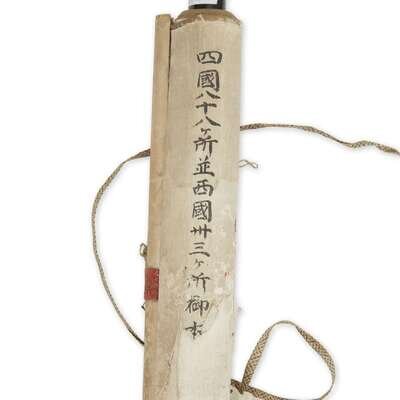 四國八十八ヶ所並西國卅三ヶ所御